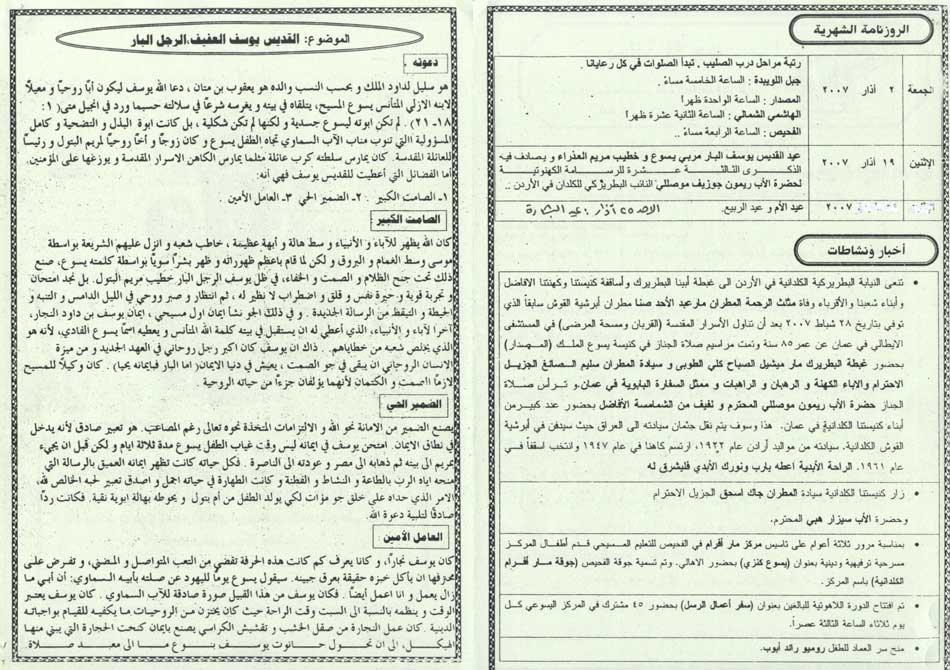 الروزنامة الشهرية
الجمعة
٢ آذار ٢٠٠٧
رتبة مراحل درب الصليب . تبدأ الصلوات في كل رعايانا .
جبل اللويبدة : الساعة الخامسة مساءً .
المصدار : الساعة الواحدة ظهراً
الهاشمي الشمالي : الساعة الثانية عشرة ظهراً
الفحيص : الساعة الرابعة مساءً ..
الإثنين
١٩ آذار ٢٠٠٧
عيد القديس يوسف البار مربي يسوع و خطيب مريم العذراء و يصادف فيه
الذكرى الثالثة عشرة للرسامة الكهنوتية
لحضرة الأب ريمون جوزيف موصللي النائب البطريركي للكلدان في الأردن ..
٢٠٠٧
عيد الأم و عيد الربيع .
الاحد ٢٥ آذار : عيد البشارة
أخبار ونشاطات
• تنعى النيابة البطريركية الكلدانية في الأردن الى غبطة أبينا البطريرك و أساقفة كنيستنا وكهنتنا الافاضل
و أبناء شعبنا و الأقرباء وفاة مثلث الرحمة المطران مارعبد الأحد صنا مطران أبرشية القوش سابقاً الذي
توفي بتاريخ ٢٨ شباط ٢٠٠٧ بعد أن تناول الأسرار المقدسة (القربان ومسحة المرضى) في المستشفى
الايطالي في عمان عن عمر ٨٥ سنة وتمت مراسيم صلاة الجناز في كنيسة يسوع الملك (المصدار)
بحضور غبطة البطريرك مار ميشيل الصباح كلي الطوبى و سيادة المطران سليم الصائغ الجزيل
الاحترام والاباء الكهنة و الرهبان و الراهبات و ممثل السفارة البابوية في عمان.و ترأس صلاة
الجناز حضرة الأب ريمون موصللي المحترم و لفيف من الشمامسة الأفاضل بحضور عند كبير من
أبناء كنيستنا الكلدانية في عمان. هذا وسوف يتم نقل جثمان سيادته الى العراق حيث سيدفن في أبرشية
القوش الكلدانية. سيادته من مواليد أرادن عام ١٩٢٢، ارتسم كاهنا في عام ١٩٤٧ و انتخب اسقفا في
عام ١٩٦١. الراحة الأبدية اعطه يارب ونورك الأبدي فليشرق له
• زار كنيستنا الكلدانية سيادة المطران جاك اسحق الجزيل الاحترام
وحضرة الأب سيزار هبي المحترم.
• بمناسبة مرور ثلاثة أعوام على تاسيس مركز مار أفرام في الفحيص للتعليم المسيحي قدم أطفال المركز
مسرحية ترفيهية ودينية بعنوان (يسوع كنزي) بحضور الاهالي. وتم تسمية جوقة الفحيص (جوقة مار أفرام
الكلدانية) باسم المركز.
• تم افتتاح الدورة اللاهوتية للبالغين بعنوان (سفر أعمال الرسل) بحضور ٤٥ مشترك في المركز اليسوعي كل
يوم ثلاثاء الساعة الثالثة عصراً.
• منح سر العماد للطفل روميو رائد أيوب.
الموضوع: القديس يوسف العفيف،الرجل البار
دعوته .
هو سليل لداود الملك و بحسب النسب والده هو يعقوب بن متان ، دعا الله يوسف ليكون أبًا روحيًّا و معيلاً
لابنه الازلي المتأنس يسوع المسيح، يتلقاه في بيته و يغرسه شرعًا في سلالته حسبما ورد في انجيل متى( ١ :
١٨- ٢١) . لم تكن ابوته ليسوع جسدية و لكنها لم تكن شكلية ، بل كانت ابوة البذل و التضحية و كامل
المسؤولية التي تنوب مناب الآب السماوي تجاه الطفل يسوع و كان زوجًا و أخًا روحيًّا لمريم البتول و رئيسًا
للعائلة المقدسة. كان يمارس سلطته كرب عائلة مثلما يمارس الكاهن الاسرار المقدسة و يوزعها على المؤمنين.
أما الفضائل التي أعطيت للقديس يوسف فهي أنه:
١- الصامت الكبير . ٢- الضمير الحي ٣- العامل الأمين .
الصامت الكبير
كان الله يظهر للآباء و الأنبياء و سط هالة و أبهة عظيمة ، خاطب شعبه و انزل عليهم الشريعة بواسطة
موسى وسط الغمام و البروق و لكن لما قام باعظم ظهوراته و ظهر بشرًا سويًّا بواسطة كلمته يسوع، صنع
ذلك تحت جنح الظلام و الصمت و الخفاء، في ظل يوسف الرجل البار خطيب مريم البتول. بل نجد امتحان
و تجربة قوية و حيرة نفس و قلق و اضطراب لا نظير له ، ثم انتظار و صبر ووحي في الليل الدامس و التنبه و
الحيطة و التيقظ من الرسالة الجديدة . و في ذلك الجو نشأ ايمان اول مسيحي ، ايمان يوسف بن داود النجار،
آخر الآباء و الأنبياء، الذي أعطي له ان يستقبل في بيته كلمة الله المتأنس و يعطيه اسمًا يسوع الفادي، لأنه هو
الذي يخلص شعبه من خطاياهم . ذاك ان يوسف كان اكبر رجل روحاني في العهد الجديد و من ميزة
الانسان الروحاني ان يبقى في جو الصمت ، يعيش في دنيا الايمان( اما البار فبايمانه يحيا) . كان وكيلاً للمسيح
لازمًا الصمت و الكتمان لأنهما يؤلفان جزءًا من حياته الروحية .
الضمير الحي
يصنع الضمير من الامانة نحو الله و الالتزامات المتخذة نحوه تعالى رغم المصاعب. هو تعبير صادق لأنه يدخل
في نطاق الايمان. امتحن يوسف في ايمانه ليس وقت غياب الطفل يسوع مدة ثلاثة ايام و لكن قبل ان يجيء
بمريم الى بيته ثم ذهابه الى مصر و عودته الى الناصرة . فكل حياته كانت تظهر ايمانه العميق بالرسالة التي
منحه اياه الرب بالطاعة و النشاط و الفطنة و كانت الطهارة في حياته اجمل و اصدق تعبير لحبه الخالص لله،
الامر الذي حداه على خلق جو مؤات لكي يولد الطفل من أم بتول و يحوطه بهالة ابوية نقية. فكانت ردًّا
صادقًا لتلبية دعوة الله.
العامل الأمين :
كان يوسف نجارًا، و كانا يعرف كم كانت هذه الحرفة تقضي من التعب المتواصل و المضني، و تفرض على
محترفها ان يأكل خبزه حقيقة بعرق جبينه. سيقول يسوع يومًا لليهود عن صلته بأبيه السماوي: أن أبي ما
زال يعمل و انا اعمل أيضًا . فكان يوسف من هذا القبيل صورة صادقة للآب السماوي . كان يوسف يعتبر
الوقت و ينظمه بالنسبة الى السبت وقت الراحة حيث كان يختزن من الروحيات ما يكفيه للقيام بواجباته
الدينية . كان عمل النجارة من صقل الخشب و تفشيش الكراسي يصنع بايمان كنحت الحجارة التي يبنى منها
الهيكل، الى ان تحول حانوت يوسف بنوع ما الى معبد صلاة